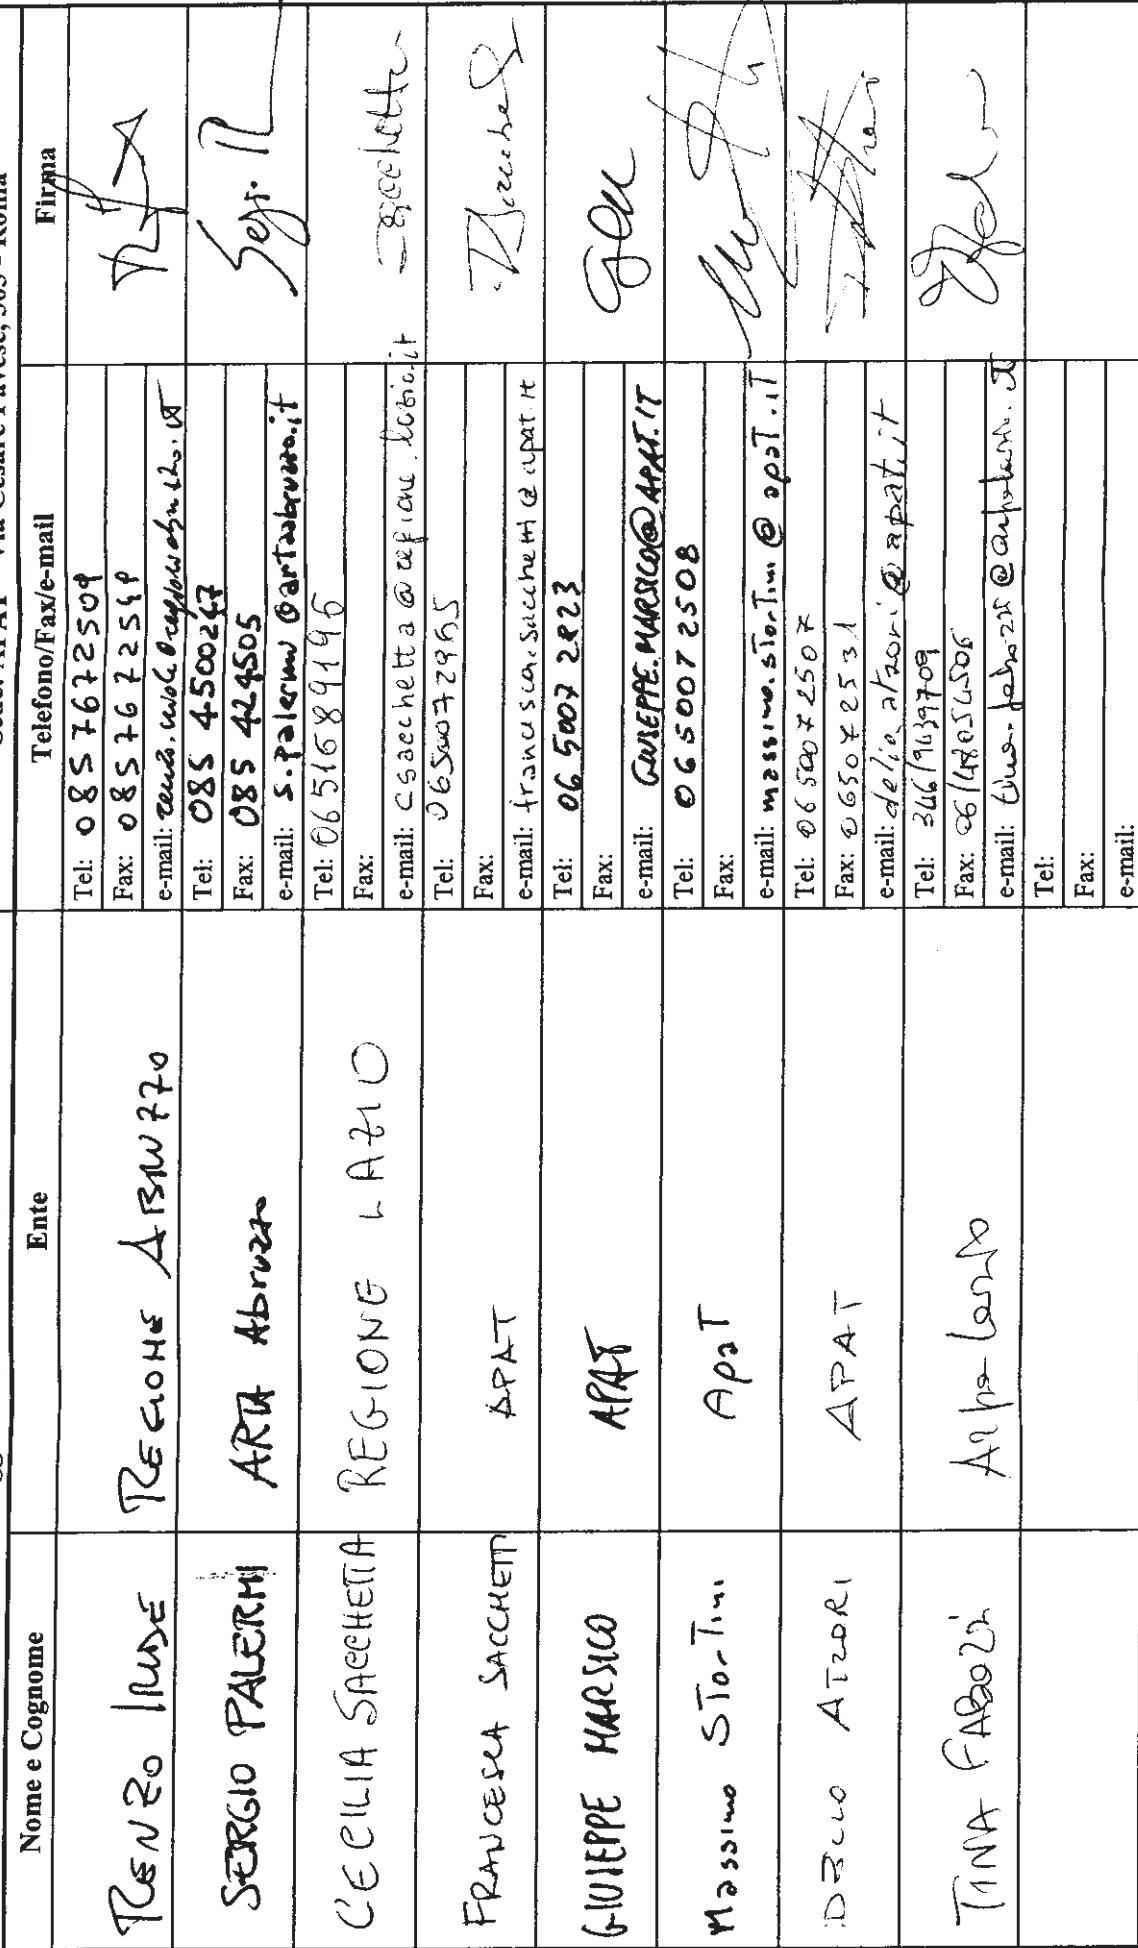 Via Cesare Pavese, 305 - Roma
Nome e Cognome Ente Telefono/Fax/e-mail Firma
RENZO REGIONE ABRUZZO Tel: 0857672509
Fax:
e-mail:
SERGIO PALERMI ARTA Abruzzo Tel: 085 4500247
Fax: 085 424505
e-mail: s.palermi@artaabruzzo.it
CECILIA SACCHETTA REGIONE LAZIO Tel: 0651689196
Fax:
e-mail: csacchetta@regione.lazio.it
FRANCESCA SACCHETTI APAT Tel: 0650072965
Fax:
e-mail: francesca.sacchetti@apat.it
GIUSEPPE MARSICO APAT Tel: 06 5007 2823
Fax:
e-mail: GIUSEPPE.MARSICO@APAT.IT
Massimo Stortini ApaT Tel: 06 5007 2508
Fax:
e-mail: massimo.stortini@apat.it
DELIO ATZORI APAT Tel: 06 5007 2507
Fax: 065072531
e-mail: delio.atzori@apat.it
TINA FABOZZI Arpa Lazio Tel: 346/9439709
Fax:
e-mail:
Tel:
Fax:
e-mail: